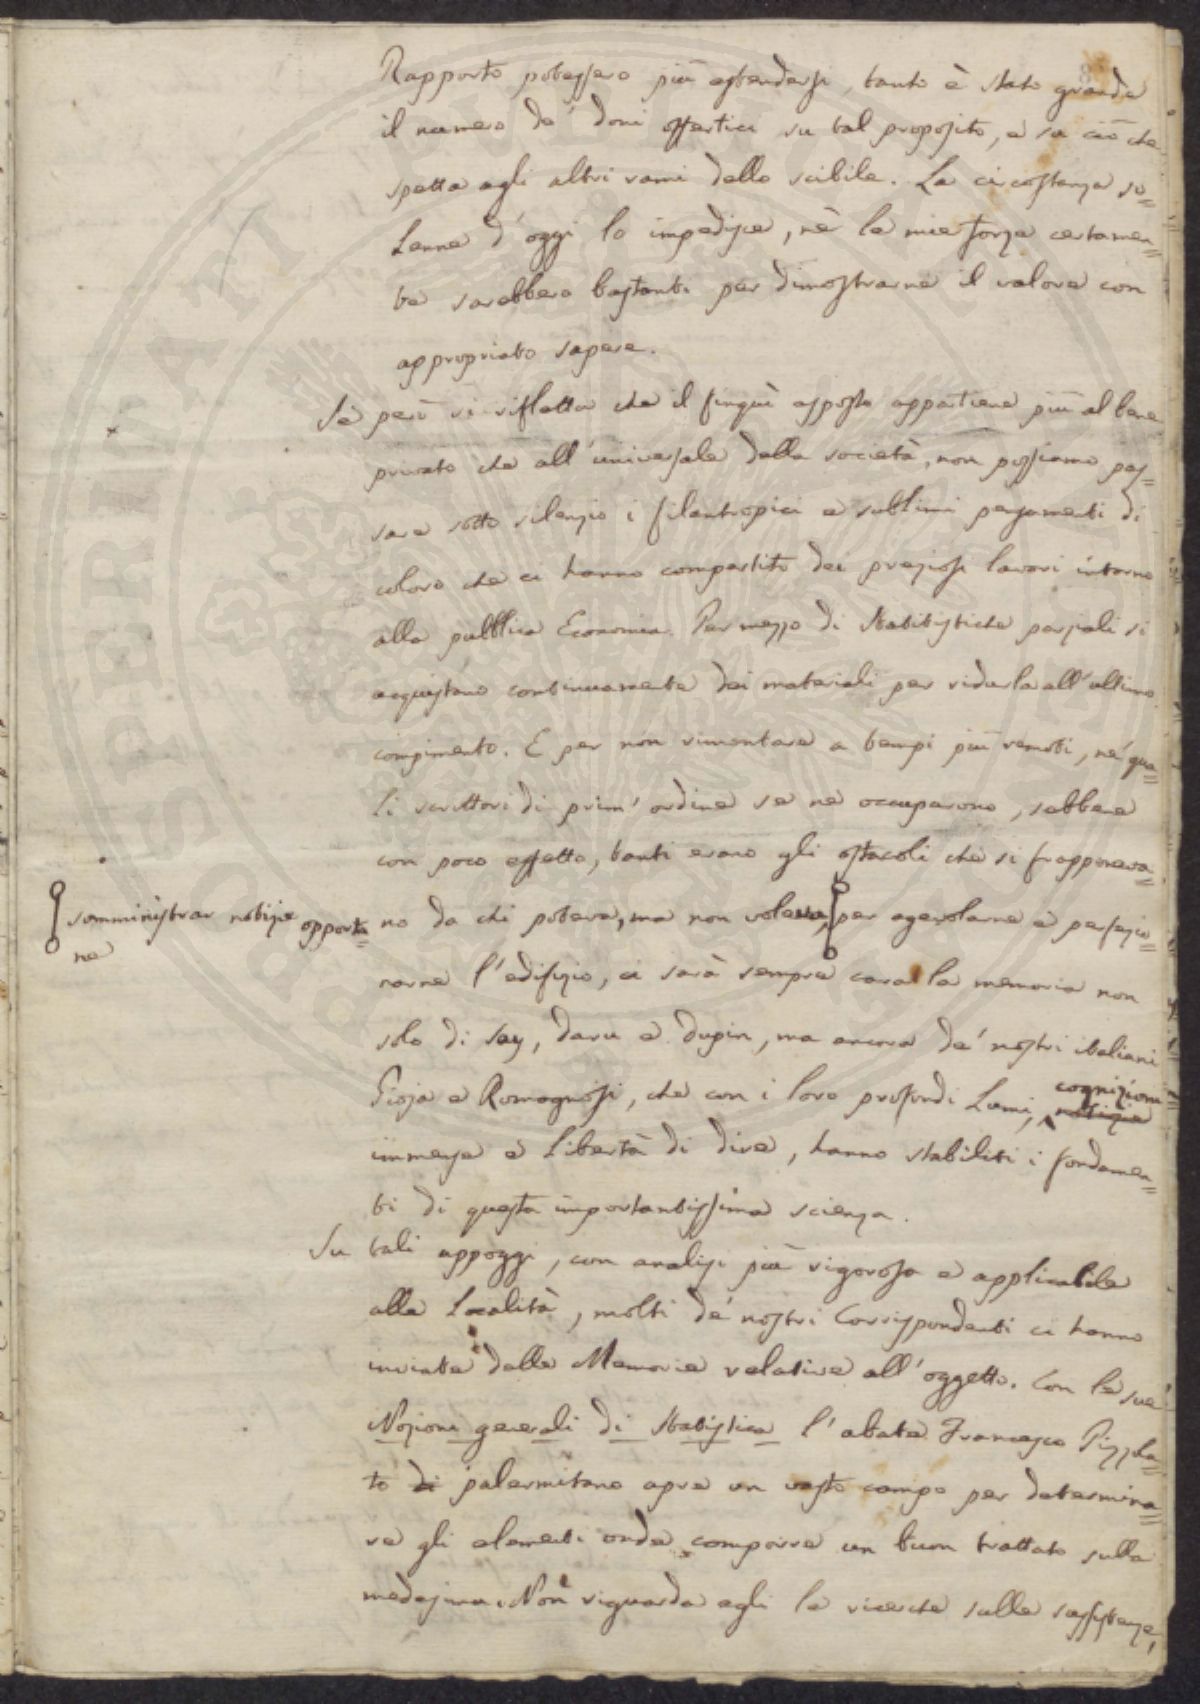 Rapporto potessero più estendersi, tanto è stato grande
il numero de' doni offertici su tal proposito, e su ciò che
spetta agli altri rami dello scibile. La circostanza so=
lenne d'oggi lo impedisce, nè le mie forze certamen=
te sarebbero bastanti per dimostrarne il valore con
appropriato sapere.
Se però si rifletta che il finquì esposto appartiene più al bene
privato che all'universale della società, non possiamo pas=
sare sotto silenzio i filantropici e sublimi pensamenti di
coloro che ci hanno compartito dei preziosi lavori intorno
alla pubblica Economia. Per mezzo di Statistiche parziali si
acquistano continuamente dei materiali per ridurla all'ultimo
compimento. E per non rimontare a tempi più remoti, ne' qua=
li scrittori di prim'ordine se ne occuparono, sebbene
con poco effetto, tanti erano gli ostacoli che si frapponeva=
no da chi poteva, ma non voleva, per agevolarne e perfezio=
somministrar notizie opportu=
ne
narne l'edifizio, ci sarà sempre cara la memoria non
solo di Say, Daru e Dupin, ma ancora de' nostri italiani
Gioja e Romagnosi, che con i loro profondi Lumi, notizie
cognizioni
immense e libertà di dire, hanno stabiliti i fondamen=
ti di questa importantissima scienza.
Su tali appoggi, con analisi più rigorosa e applicabile
alle Località, molti de' nostri Corrispondenti ci hanno
inviate delle Memorie relative all'oggetto. Con le sue
Nozioni generali di Statistica l'abate Francesco Pizzola=
to di palermitano apre un vasto campo per determina=
re gli elementi onde comporre un buon trattato sulla
medesima. Non riguarda egli le ricerche sulle sussistenze,